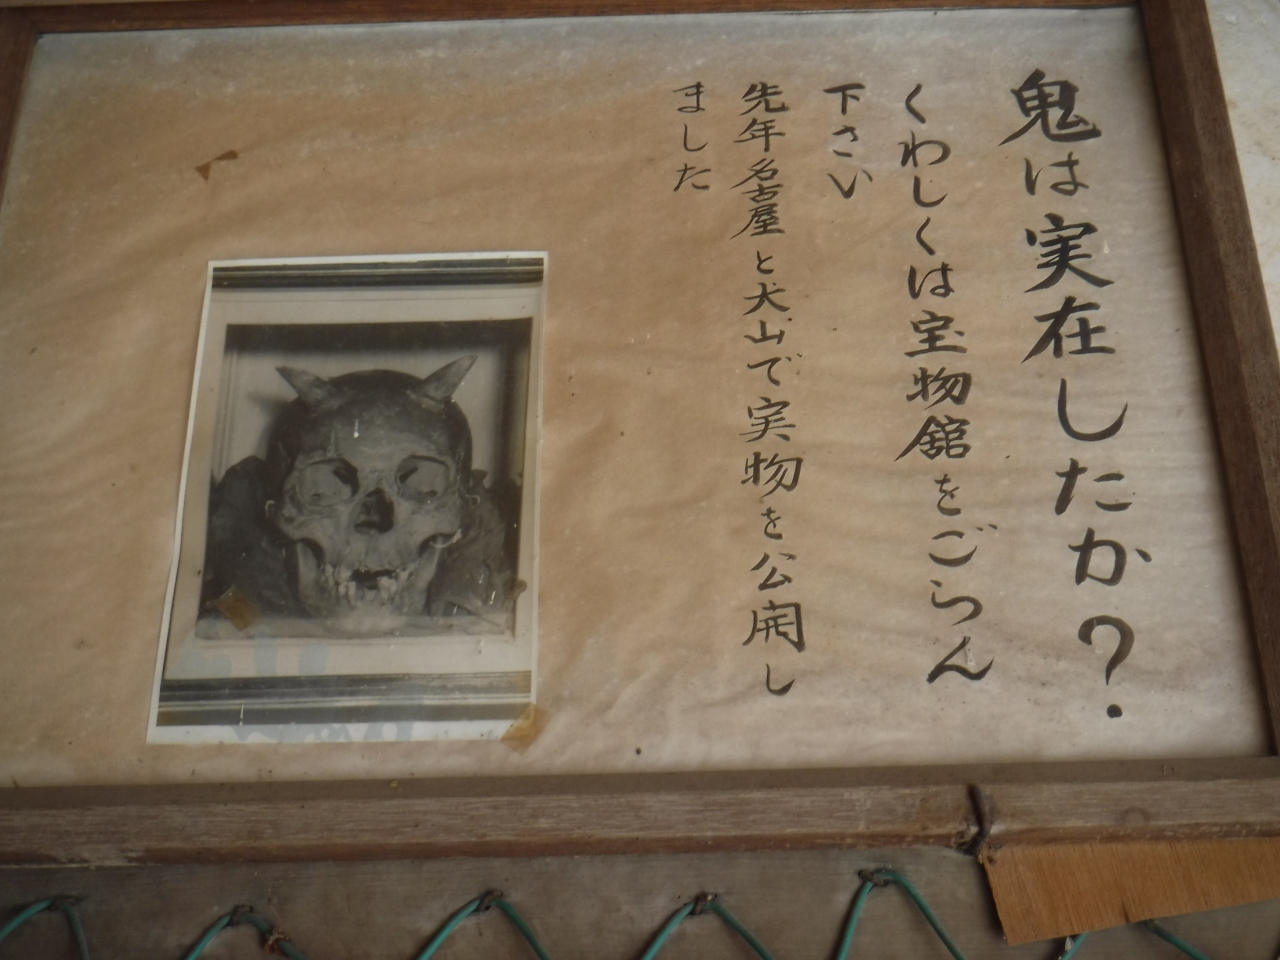 鬼は実在したか?
くわしくは宝物館をごらん
下さい
先年名古屋と犬山で実物を公開し
ました